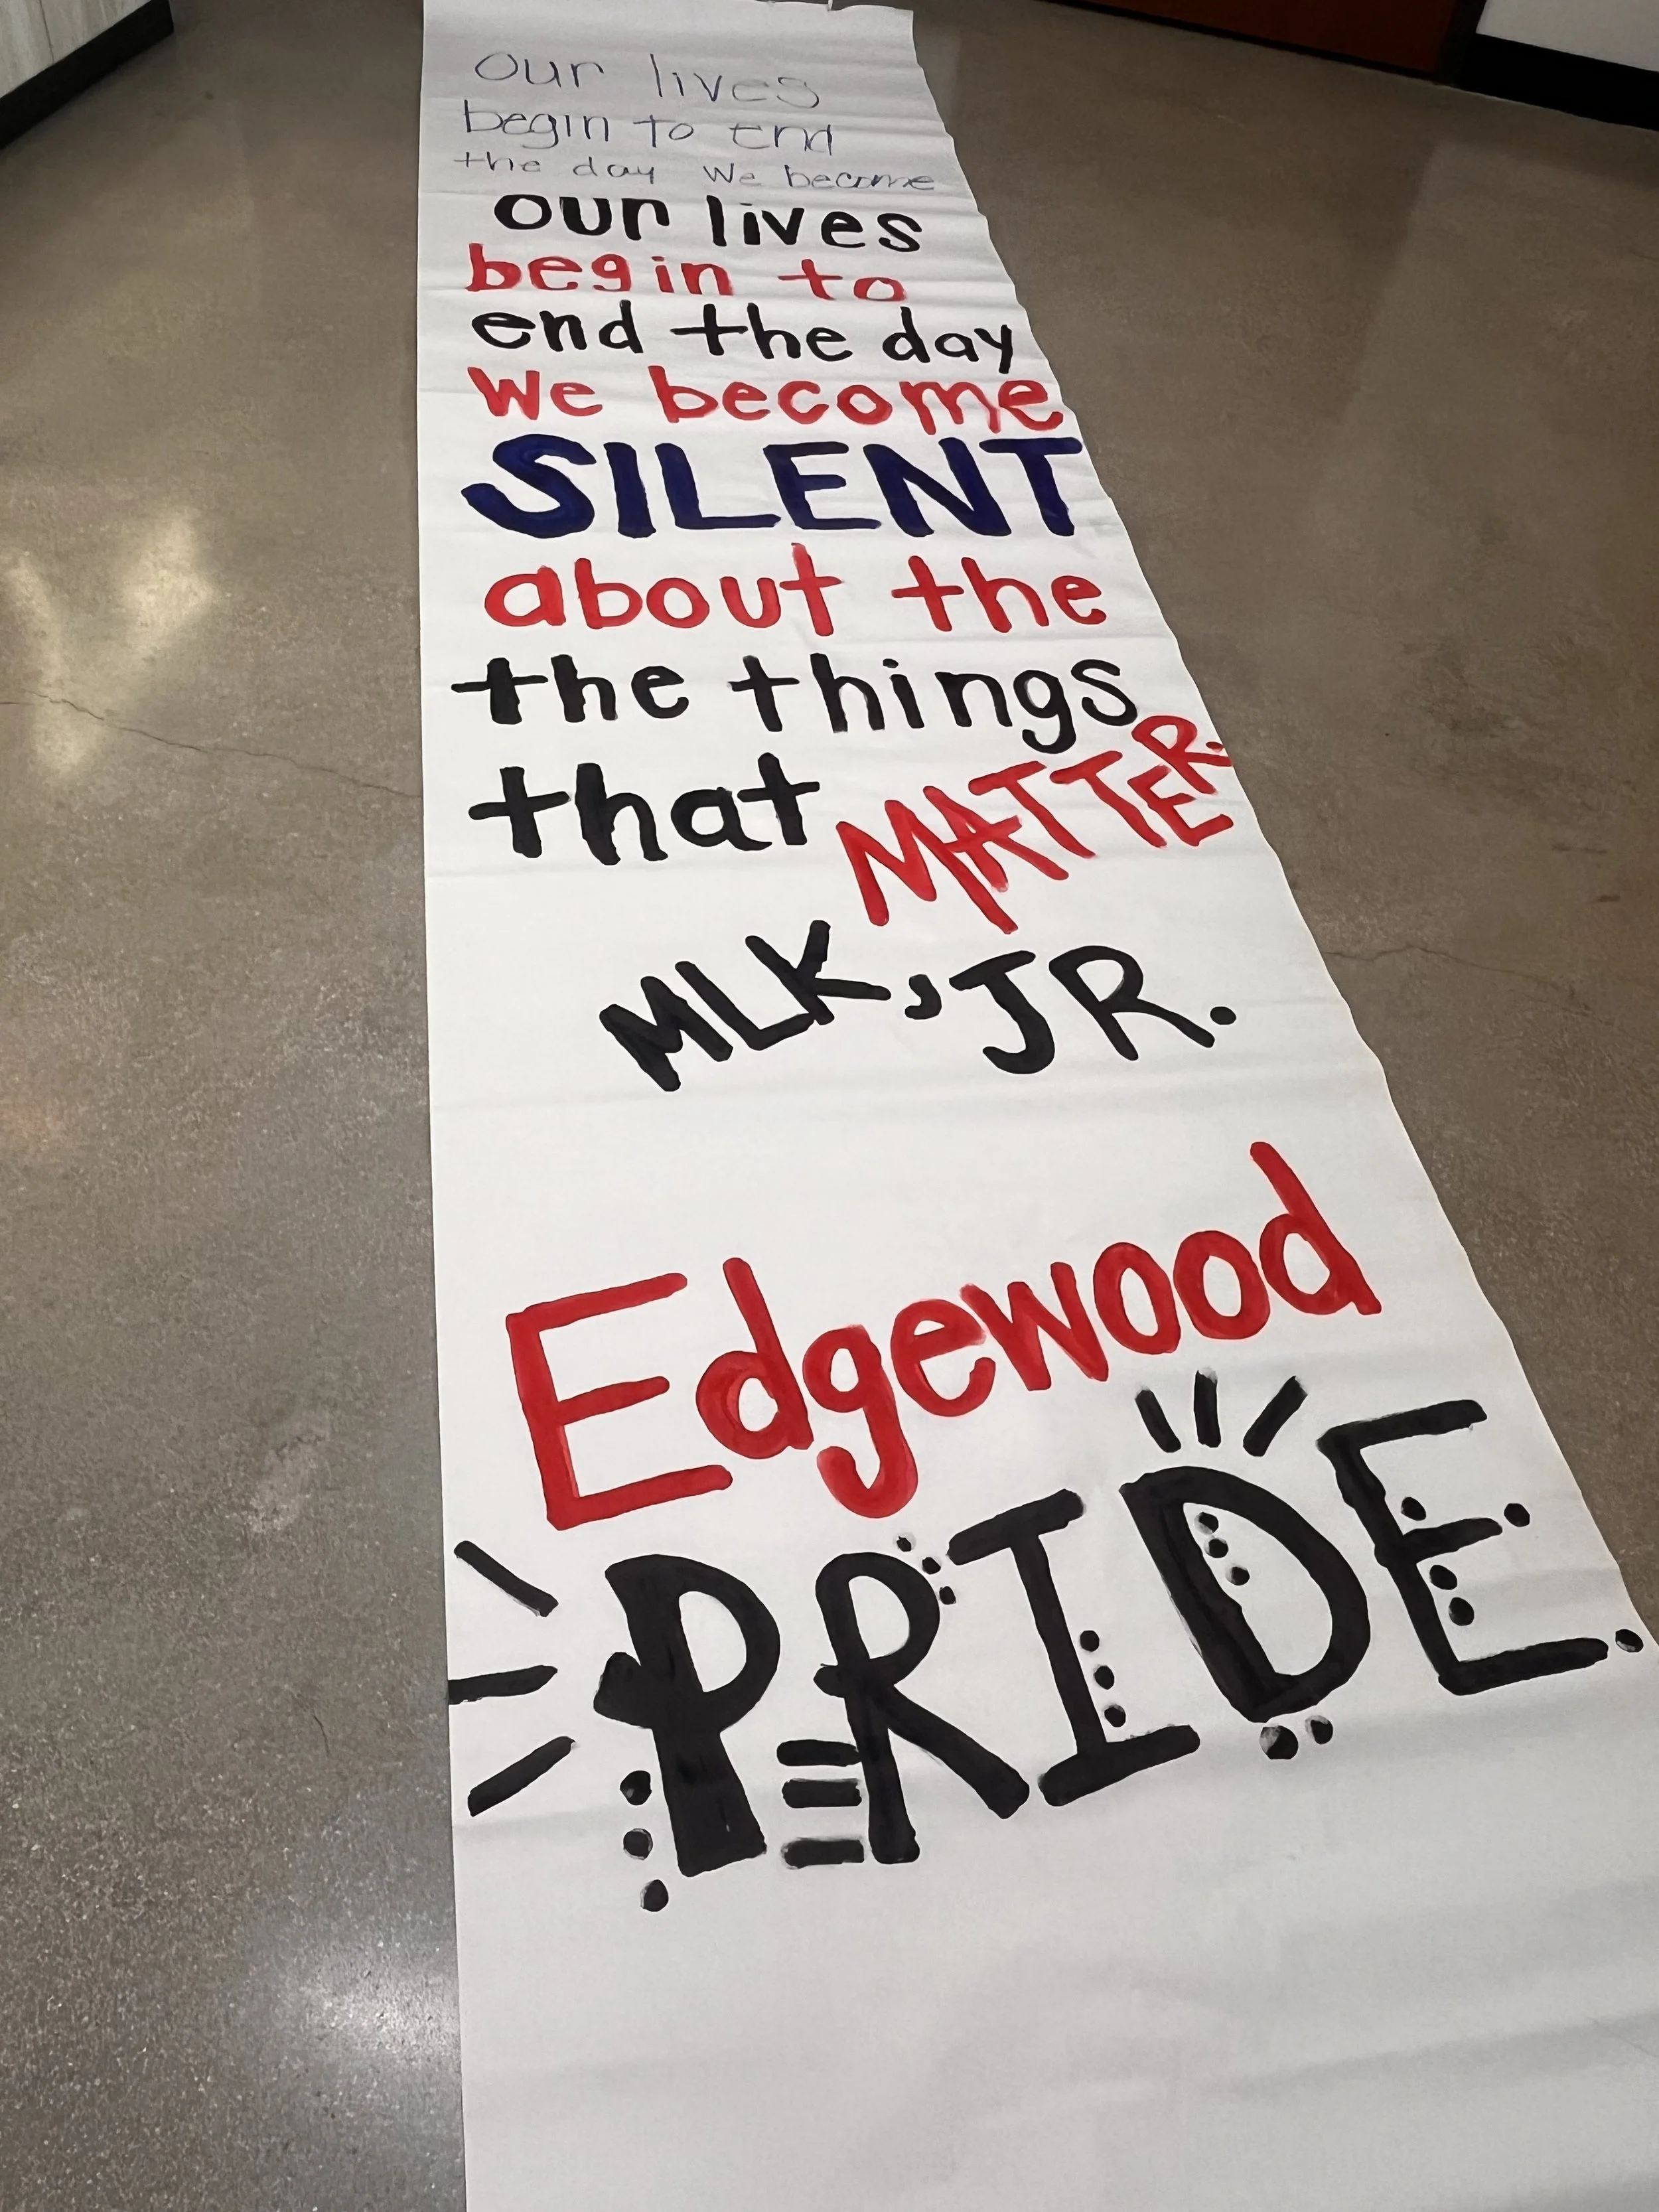 our lives
begin to end
the day we become
our lives
begin to
end the day
We become
SILENT
about the
the things
that MATTER.
MLK, JR.
Edgewood
PRIDE.